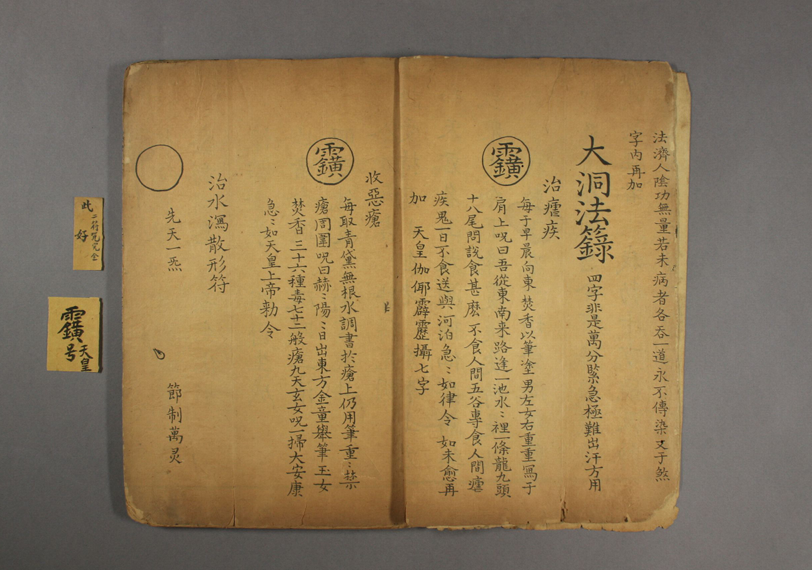 法濟人陰功無量若未病者各吞一道永不傳染又于煞
字內再加
大洞法籙 四字非是萬分緊急極難出汗方用
治瘧疾
每于早晨向東焚香以筆塗男左女右重重寫于
肩上呪曰吾從東南来路逢一池水〻裡一條龍九頭
十八尾問誐食甚麽不食人間五谷專食人間瘧
疾鬼一日不食送與河泊急〻如律令 如未愈再
加 天皇伽倻霹靂攝七字
收惡瘡
每取青黛無根水調書於瘡上仍用筆重〻禁
瘡周圍呪曰赫〻陽〻日出東方金童舉筆玉女
焚香三十六種毒七十二般瘡九天玄女呪一掃大安康
急〻如天皇上帝勅令
治水瀉散形符
先天一炁
節制萬灵
此二符咒完全
好
天皇
号